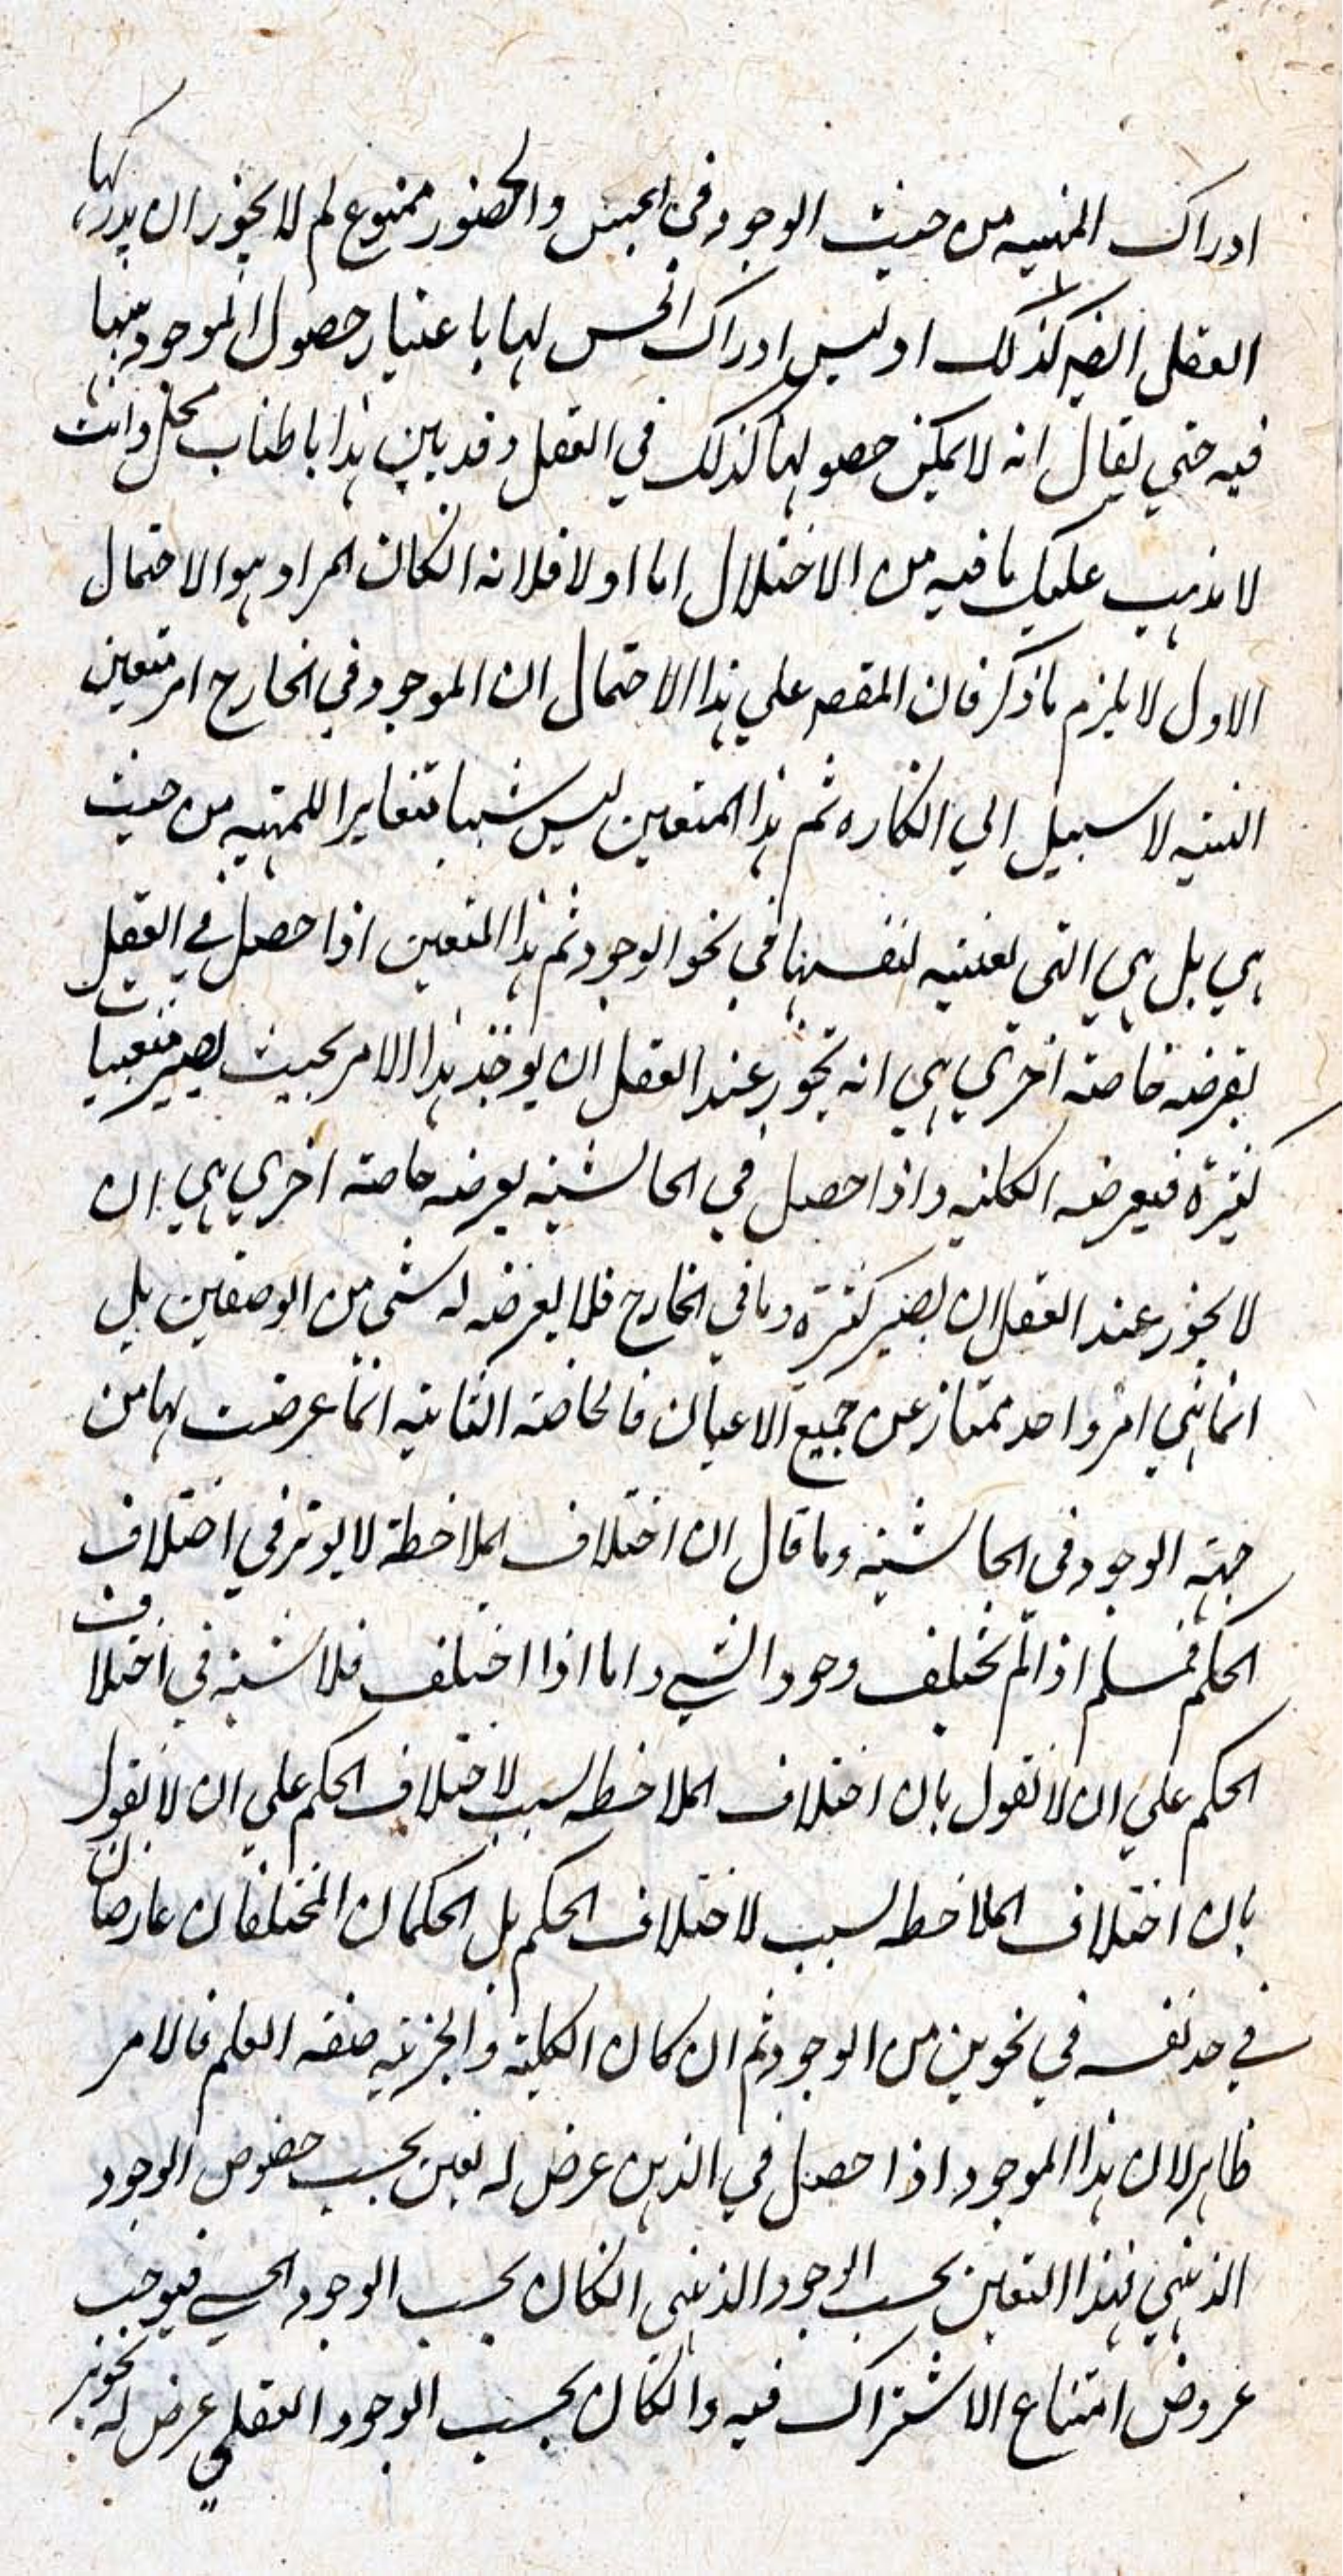 ادراك المهيه من حيث الوجود في الحس والحضور ممنوع لم لا يجوز ان يدركها
العقل ايضا كذلك اوليس ادراك الحس لها باعتبار حصول الموجود منها
فيه حتي يقال انه لا يمكن حصولها كذلك في العقل وقد بين هذا باطناب مخل وانت
لا يذهب عليك ما فيه من الاختلال اما اولا فلانه انكان المراد هو الاحتمال
الاول لا يلزم ما ذكر فان المقصر علي هذا الاحتمال ان الموجود في الخارج امر متعين
البتيه لا سبيل الي انكاره ثم هذا المتعين ليس شيها متغايرا للمهيه من حيث
هي بل هي التي لعنيه لنفسها في نحو الوجود ثم هذا المتعين اذا حصل في العقل
يعرضه خاصته اخري هي انه يجوز عند العقل ان يوخذ هذا الامر بحيث يصير متعينات
كثيرة فيعرضه الكليه واذا حصل في الحاسيه يعرضه خاصته اخري هي ان
لا يجوز عند العقل ان يصير كثيرة وما في الخارج فلا يعرضه له شي من الوصفين بل
انما هي امر واحد ممتاز عن جميع الاعيان فالخاصته الثانيه انما عرضت لها من
جهته الوجود في الحاسيه وما قال ان اختلاف الملاحظة لا يوثر في اختلاف
الحكم فمسلم اذا لم يختلف وجود الشي واما اذا اختلف فلا شبه في اختلاف
الحكم علي ان لا نقول بان اختلاف الملاحظه سبب لاختلاف الحكم علي ان لا نقول
بان اختلاف الملاحظه سبب لاختلاف الحكم بل الحكمان المختلفان عارضان
في حد نفسه في نحوين من الوجود ثم ان كان الكليته والجزئيه صفه العلم فالامر
ظاهر لان هذا الموجود اذا حصل في الذهن عرض له تعين بحسب خصوص الوجود
الذهني فهذا التعين بحسب الوجود الذهني انكان بحسب الوجود الحسي فيوجب
عروض امتناع الاشتراك فيه وانكان بحسب الوجود العقلي عرض له تجويز